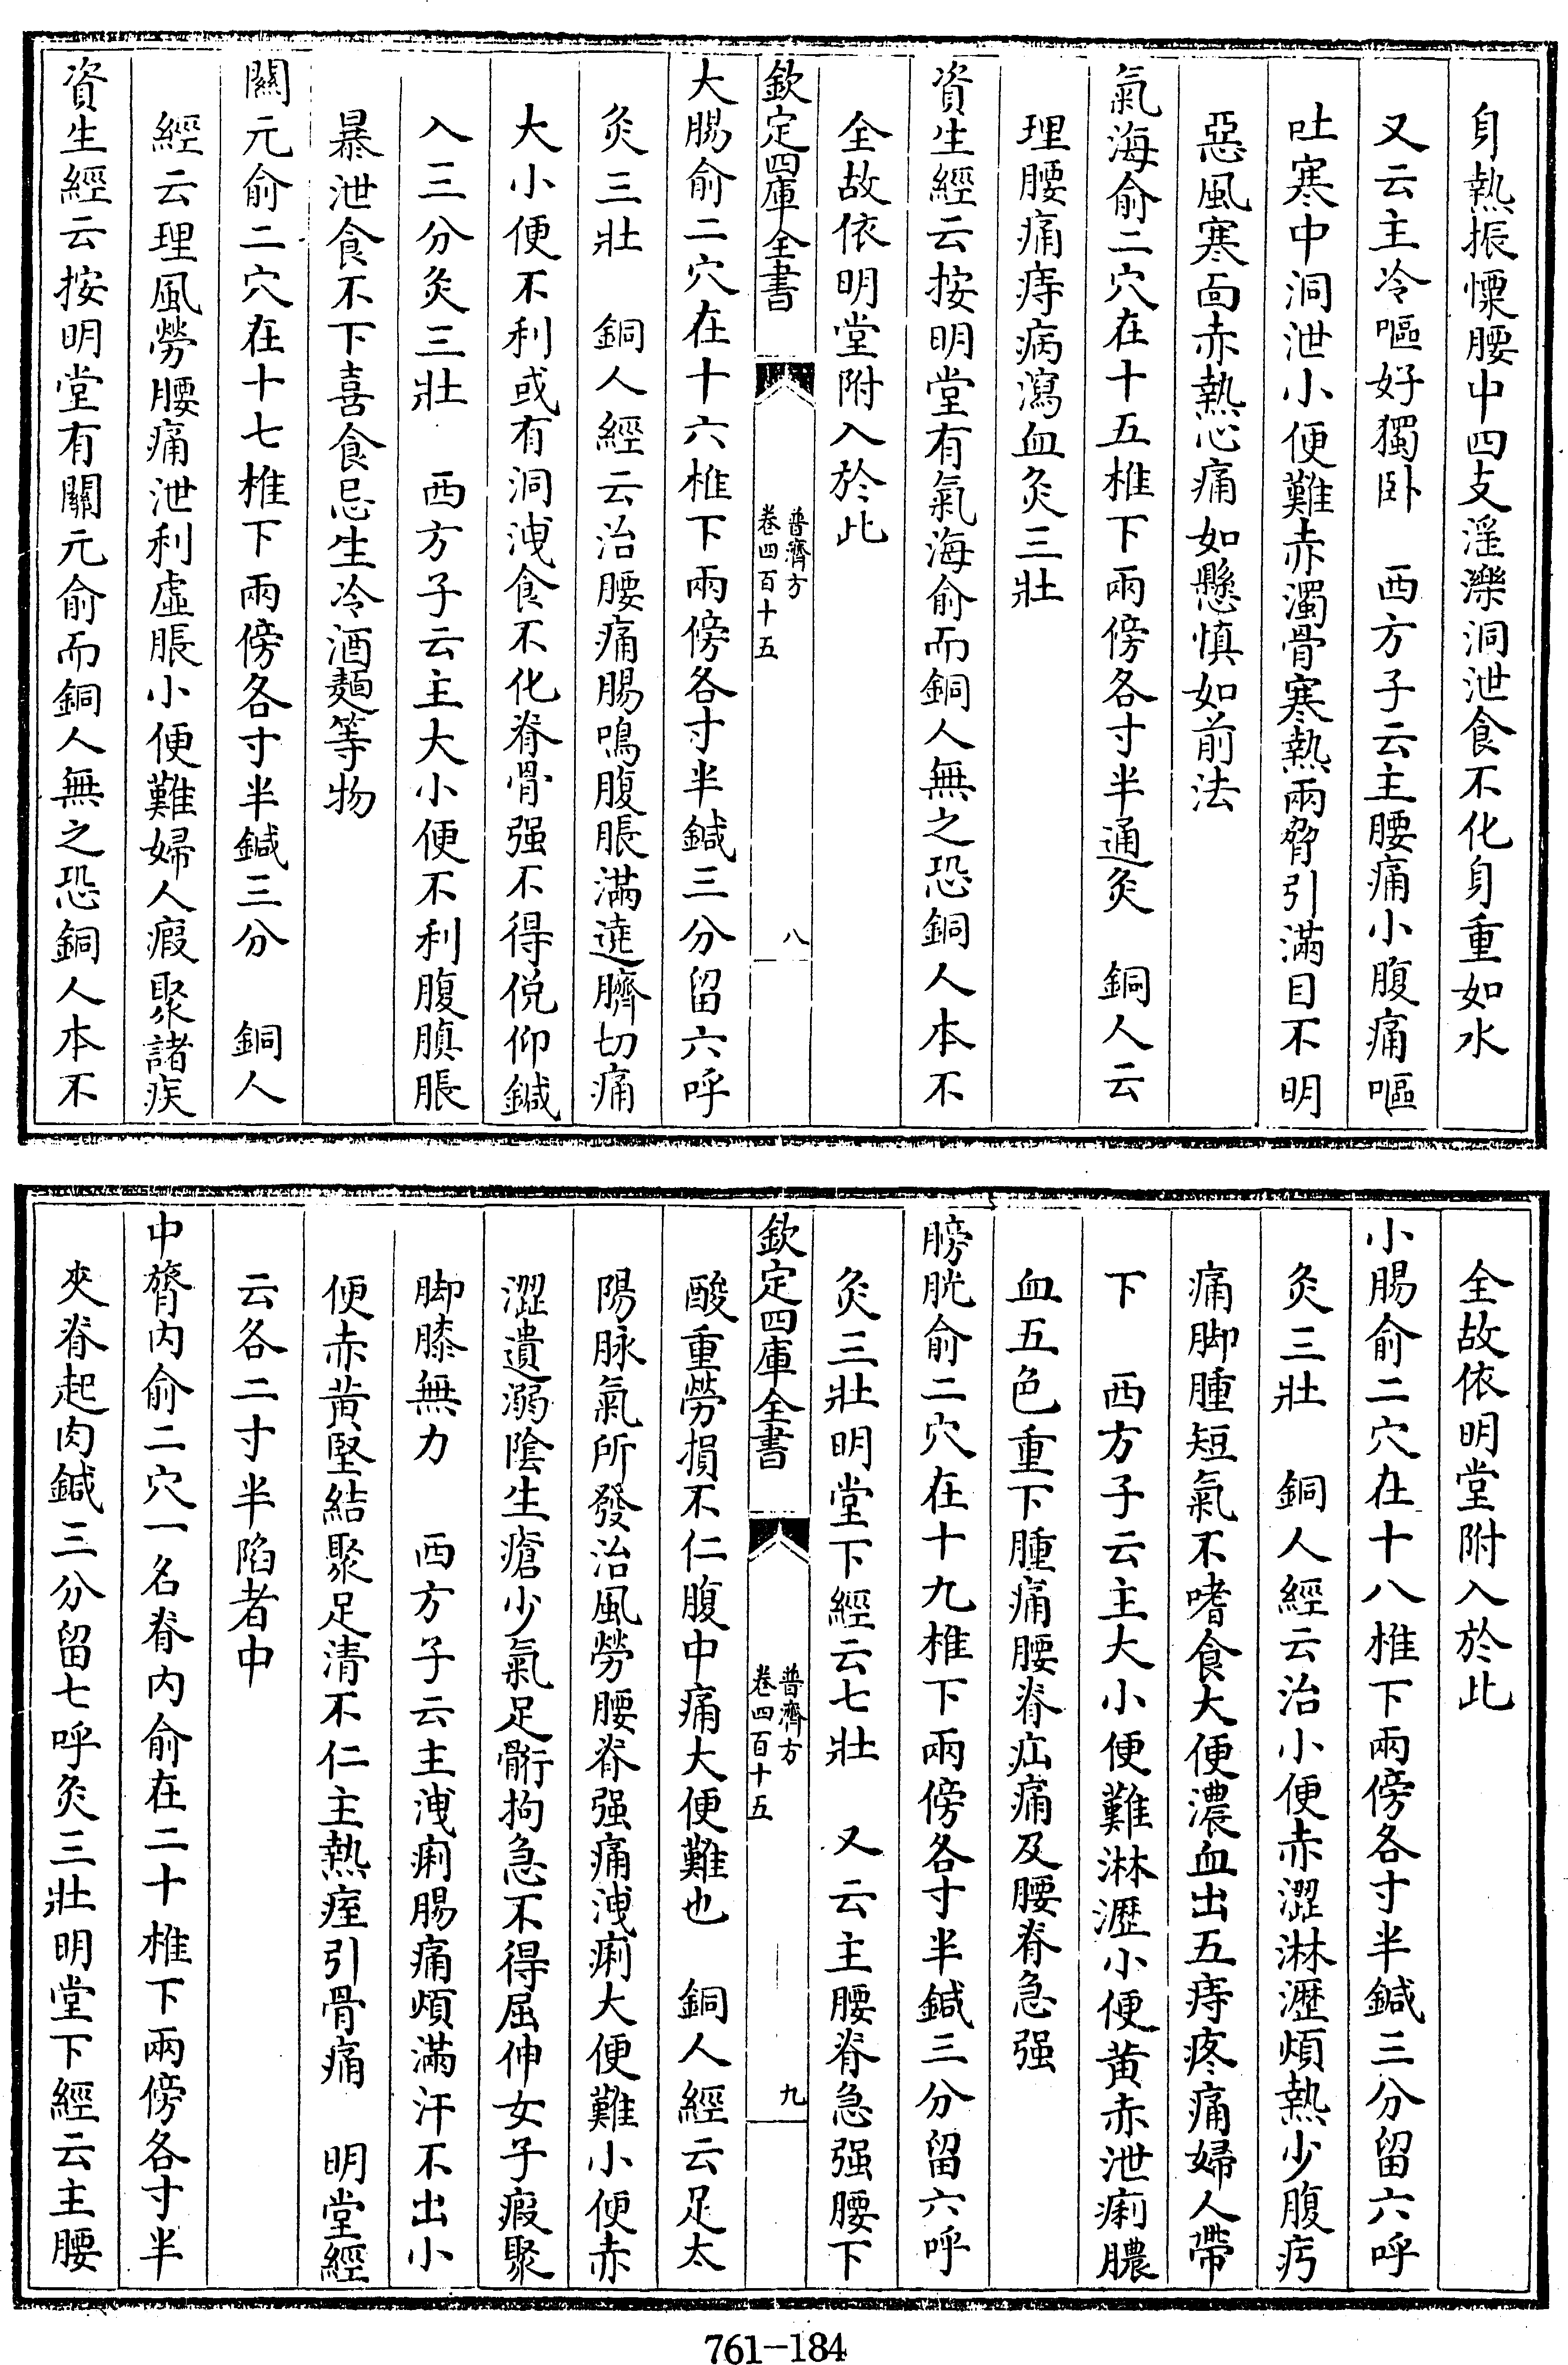 身熱振慄腰中四支淫濼洞泄食不化身重如水
又云主冷嘔好獨卧　西方子云主腰痛小腹痛嘔
吐寒中洞泄小便難赤濁骨寒熱兩脅引滿目不明
惡風寒面赤熱心痛如懸慎如前法
氣海俞二穴在十五椎下兩傍各寸半通灸　銅人云
理腰痛痔病瀉血灸三壯
資生經云按明堂有氣海俞而銅人無之恐銅人本不
全故依明堂附入於此
欽定四庫全書
普濟方
卷四百十五
八
大腸俞二穴在十六椎下兩傍各寸半鍼三分留六呼
灸三壯　銅人經云治腰痛腸鳴腹脹滿遶臍切痛
大小便不利或有洞洩食不化脊骨强不得俛仰鍼
入三分灸三壯　西方子云主大小便不利腹䐜脹
暴泄食不下喜食忌生冷酒麵等物
關元俞二穴在十七椎下兩傍各寸半鍼三分　銅人
經云理風勞腰痛泄利虛脹小便難婦人瘕聚諸疾
資生經云按明堂有關元俞而銅人無之恐銅人本不
全故依明堂附入於此
小腸俞二穴在十八椎下兩傍各寸半鍼三分留六呼
灸三壯　銅人經云治小便赤澀淋瀝煩熱少腹㽲
痛脚腫短氣不嗜食大便濃血出五痔疼痛婦人帶
下　西方子云主大小便難淋瀝小便黄赤泄痢膿
血五色重下腫痛腰脊疝痛及腰脊急强
膀胱俞二穴在十九椎下兩傍各寸半鍼三分留六呼
灸三壯明堂下經云七壯　又云主腰脊急强腰下
欽定四庫全書
普濟方
卷四百十五
九
酸重勞損不仁腹中痛大便難也　銅人經云足太
陽脉氣所發治風勞腰脊强痛洩痢大便難小便赤
澀遺溺陰生瘡少氣足䯒拘急不得屈伸女子瘕聚
脚膝無力　西方子云主洩痢腸痛煩滿汗不出小
便赤黄堅結聚足清不仁主熱痓引骨痛　明堂經
云各二寸半陷者中
中膂内俞二穴一名脊内俞在二十椎下兩傍各寸半
夾脊起肉鍼三分留七呼灸三壯明堂下經云主腰
761-184